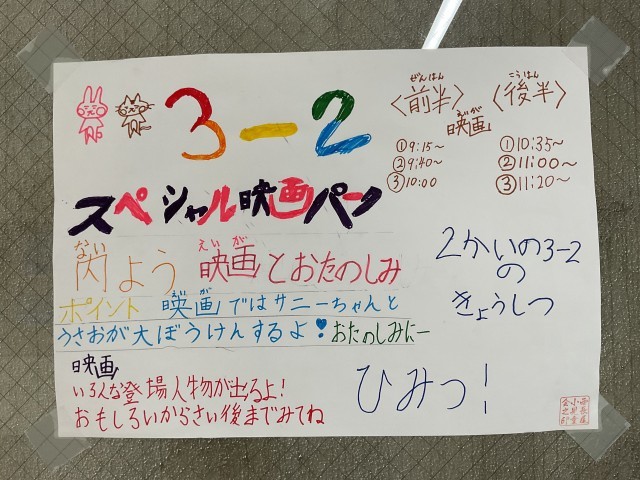 3-2
スペシャル映画パーク
ない
内よう
えいが
映画とおたのしみ
ポイント
えいが
映画ではサニーちゃんと
うさおが大ぼうけんするよ!おたのしみにー
映画
いろんな登場人物が出るよ!
おもしろいからさい後までみてね
ぜんはん
〈前半〉
こうはん
〈後半〉
えいが
映画
①9:15〜
②9:40〜
③10:00
①10:35〜
②11:00〜
③11:20〜
2かいの3-2
の
きょうしつ
ひみつ!